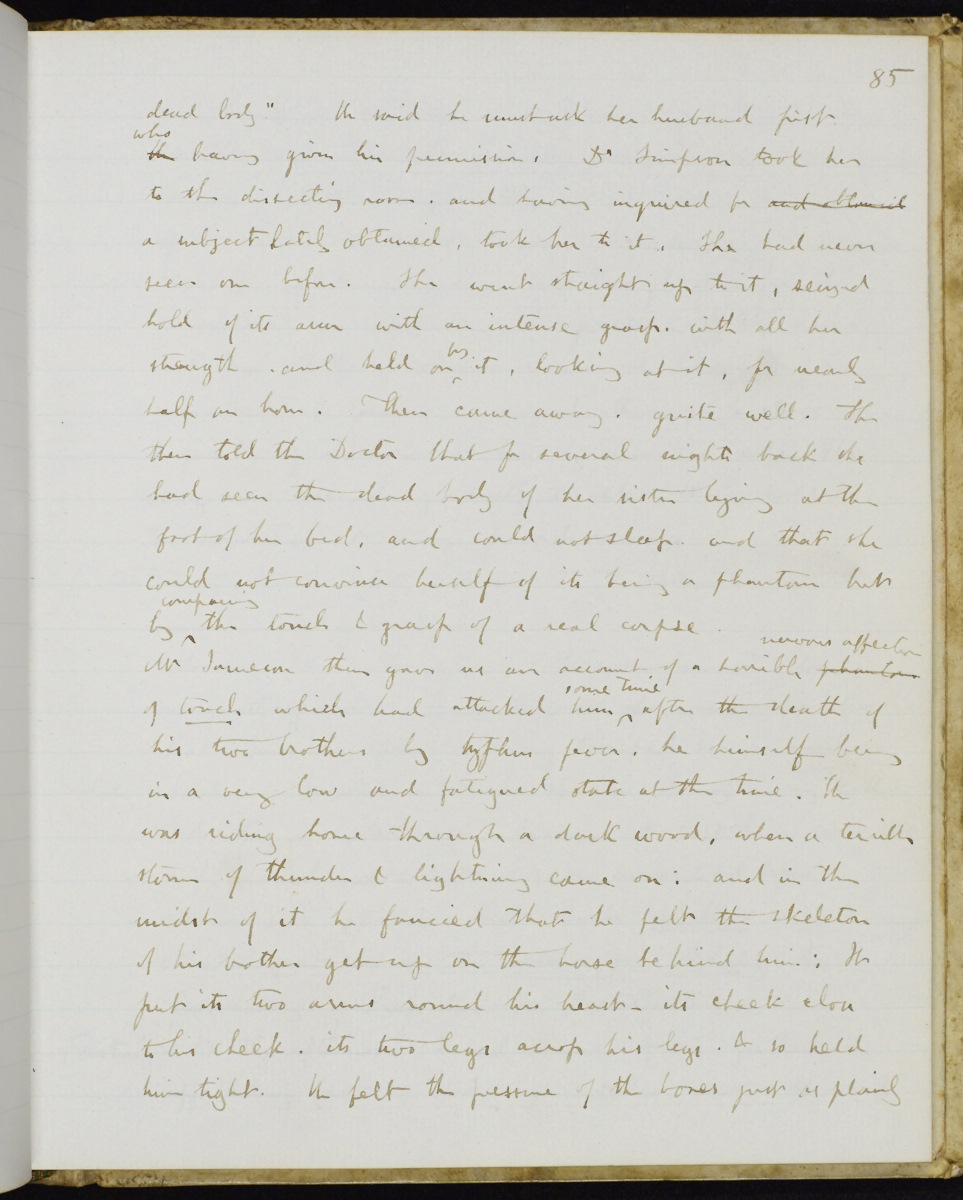 85
dead body" He said he must ask her husband first
who
the having given his permission. Dr Simpson took her
to the dissecting room. and having inquired for and obtained
a subject lately obtained, took her to it. She had never
seen one before. She went straight up to it, seized
hold of its arm with an intense grasp. with all her
strength. and held on to it, looking at it, for nearly
half an hour. Then came away. quite well. She
then told the Doctor that for several nights back she
had seen the dead body of her sister lying at the
foot of her bed, and could not sleep. and that she
could not convince herself of its being a phantom but
comparing
by the touch & grasp of a real corpse.
nervous affection
Mr Jameson then gave us an account of a horrible phantom
some time
of touch which had attacked him, after the death of
his two brothers by typhus fever. he himself being
in a very low and fatigued state at the time. He
was riding home through a dark wood, when a terrible
storm of thunder & lightning came on: and in the
midst of it he fancied that he felt the skeleton
of his brother get up on the horse behind him: It
put its two arms round his heart - its cheek close
to his cheek. its two legs across his legs. & so held
him tight. He felt the pressure of the bones just as plainly